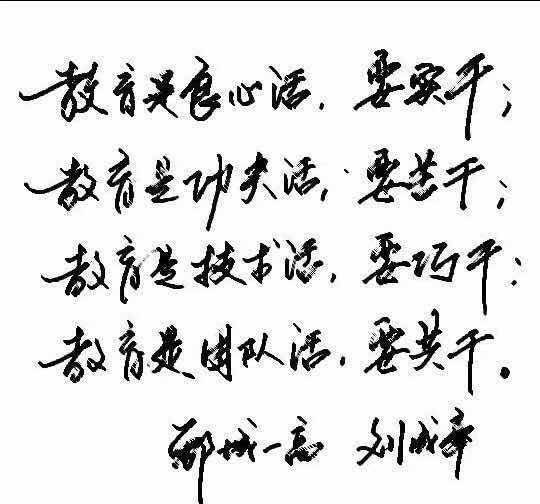 教育是良心活，要实干；
教育是功夫活，要苦干；
教育是技术活，要巧干；
教育是团队活，要共干。
郸城一高 刘成章